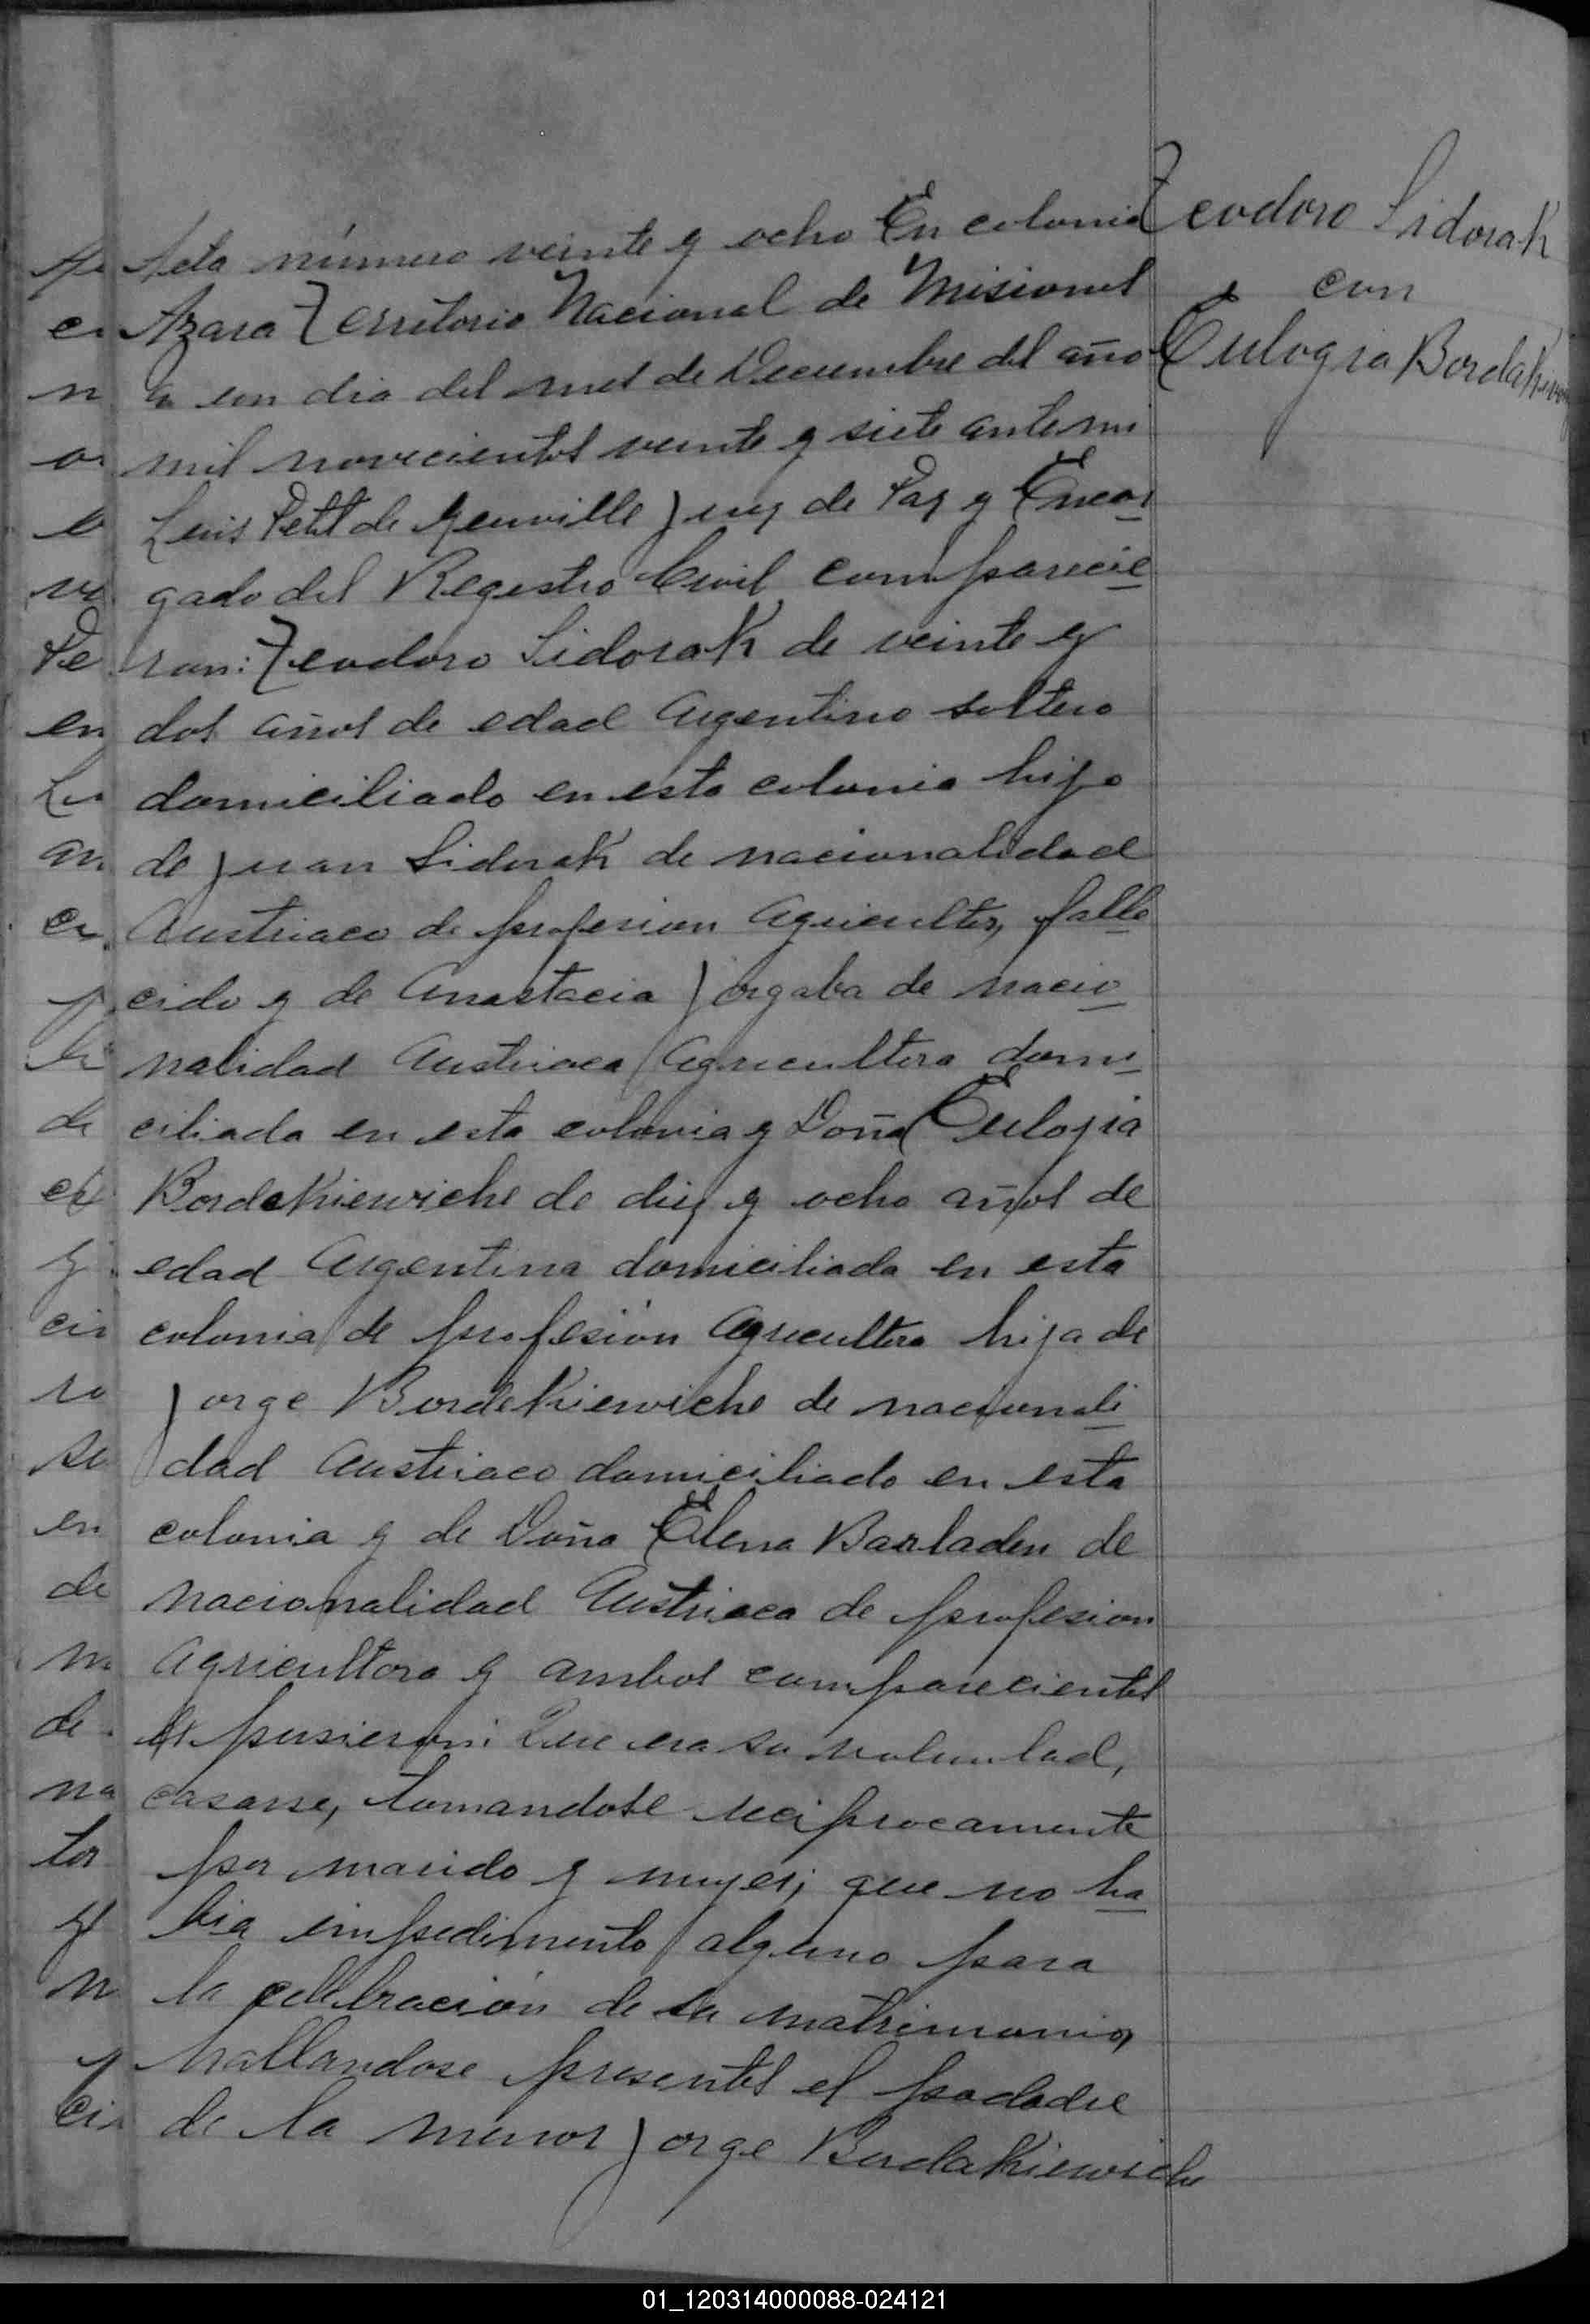 Acta número veinte y ocho En colonia
Azara Territorio Nacional de Misiones
a un dia del mes de Decembre del año
mil novecientos veinte y siete ante mi
Luis Petit de Meuville Juez de Paz y Encar
gado del Registro Civil comparecie
ron: Teodoro Sidorak de veinte y
dos años de edad Argentino soltero
domiciliado en esta colonia hijo
de Juan Sidorak de nacionalidad
Austriaco de profesion Agricultor, falle
cido y de Anastacia Jorgaba de nacio
nalidad Austriaca Agricultora domi
ciliada en esta colonia y Doña Eulogia
Bordakiewiche de diez y ocho años de
edad Argentina domiciliada en esta
colonia de profesión Agricultora hija de
Jorge Bordekiewiche de nacionali
dad Austriaco domiciliado en esta
colonia y de Doña Elena Barladen de
nacionalidad Austriaca de profesion
Agricultora y ambos comparecientes
expusieron: Que era su voluntad,
casarse, tomandose reciprocamente
por marido y mujer; que no ha
bia impedimento alguno para
la celebración de su matrimonio,
hallandose presentes el padadre
de la menor Jorge Bordakiewiche
Teodoro Sidorak
con
Eulogia
01_120314000088-024121